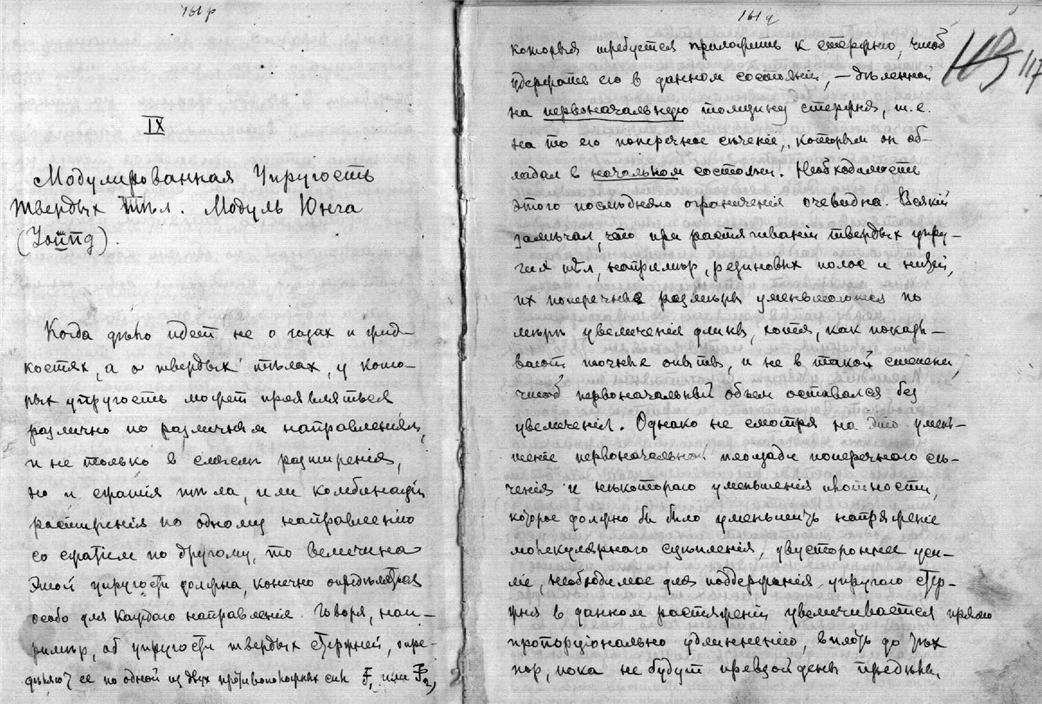 161р
IX
Модулированная Упругость
твердых тѣл. Модуль Юнга
(Young).
Когда дѣло идет не о газах и жид-
костях, а о твердых тѣлах, у кото-
рых упругость может проявляться
различно по различным направлениям,
и не только в смысле расширенія,
но и сжатія тѣла, или комбинацій
расширенія по одному направленію
со сжатіем по другому, то величина
этой упругости должна, конечно опредѣляться
особо для каждаго направленія. Говоря, нап-
ример, об упругости твердых стержней, опре-
дѣляют ее по одной из двух противоположных сил F₁ или F₂,
161q
117
которыя требуется приложить к стержню, чтоб
удержать его в данном состояніи, — дѣленной
на первоначальную толщину стержня, т.е.
на то его поперечное сѣченіе, которым он об-
ладал в начальном состояніи. Необходимость
этого послѣдняго ограниченія очевидна. Всякій
замѣчал, что при растягиваніи твердых упру-
гих тѣл, напримѣр, резиновых полос и нитей,
их поперечные размѣры уменьшаются по
мѣрѣ увеличенія длины, хотя, как показы-
вают точные опыты, и не в такой степени,
чтоб первоначальный объем оставался без
увеличенія. Однако не смотря на это умень-
шеніе первоначальной площади поперечнаго сѣ-
ченія и нѣкотораго уменьшенія плотности,
которое должно бы было уменьшить напряженіе
молекулярнаго сцѣпленія, двустороннее уси-
ліе, необходимое для поддержанія упругаго стер-
жня в данном растяженіи увеличивается прямо
пропорціонально удлинненію, вплоть до тѣх
пор, пока не будут превзойдены предѣлы